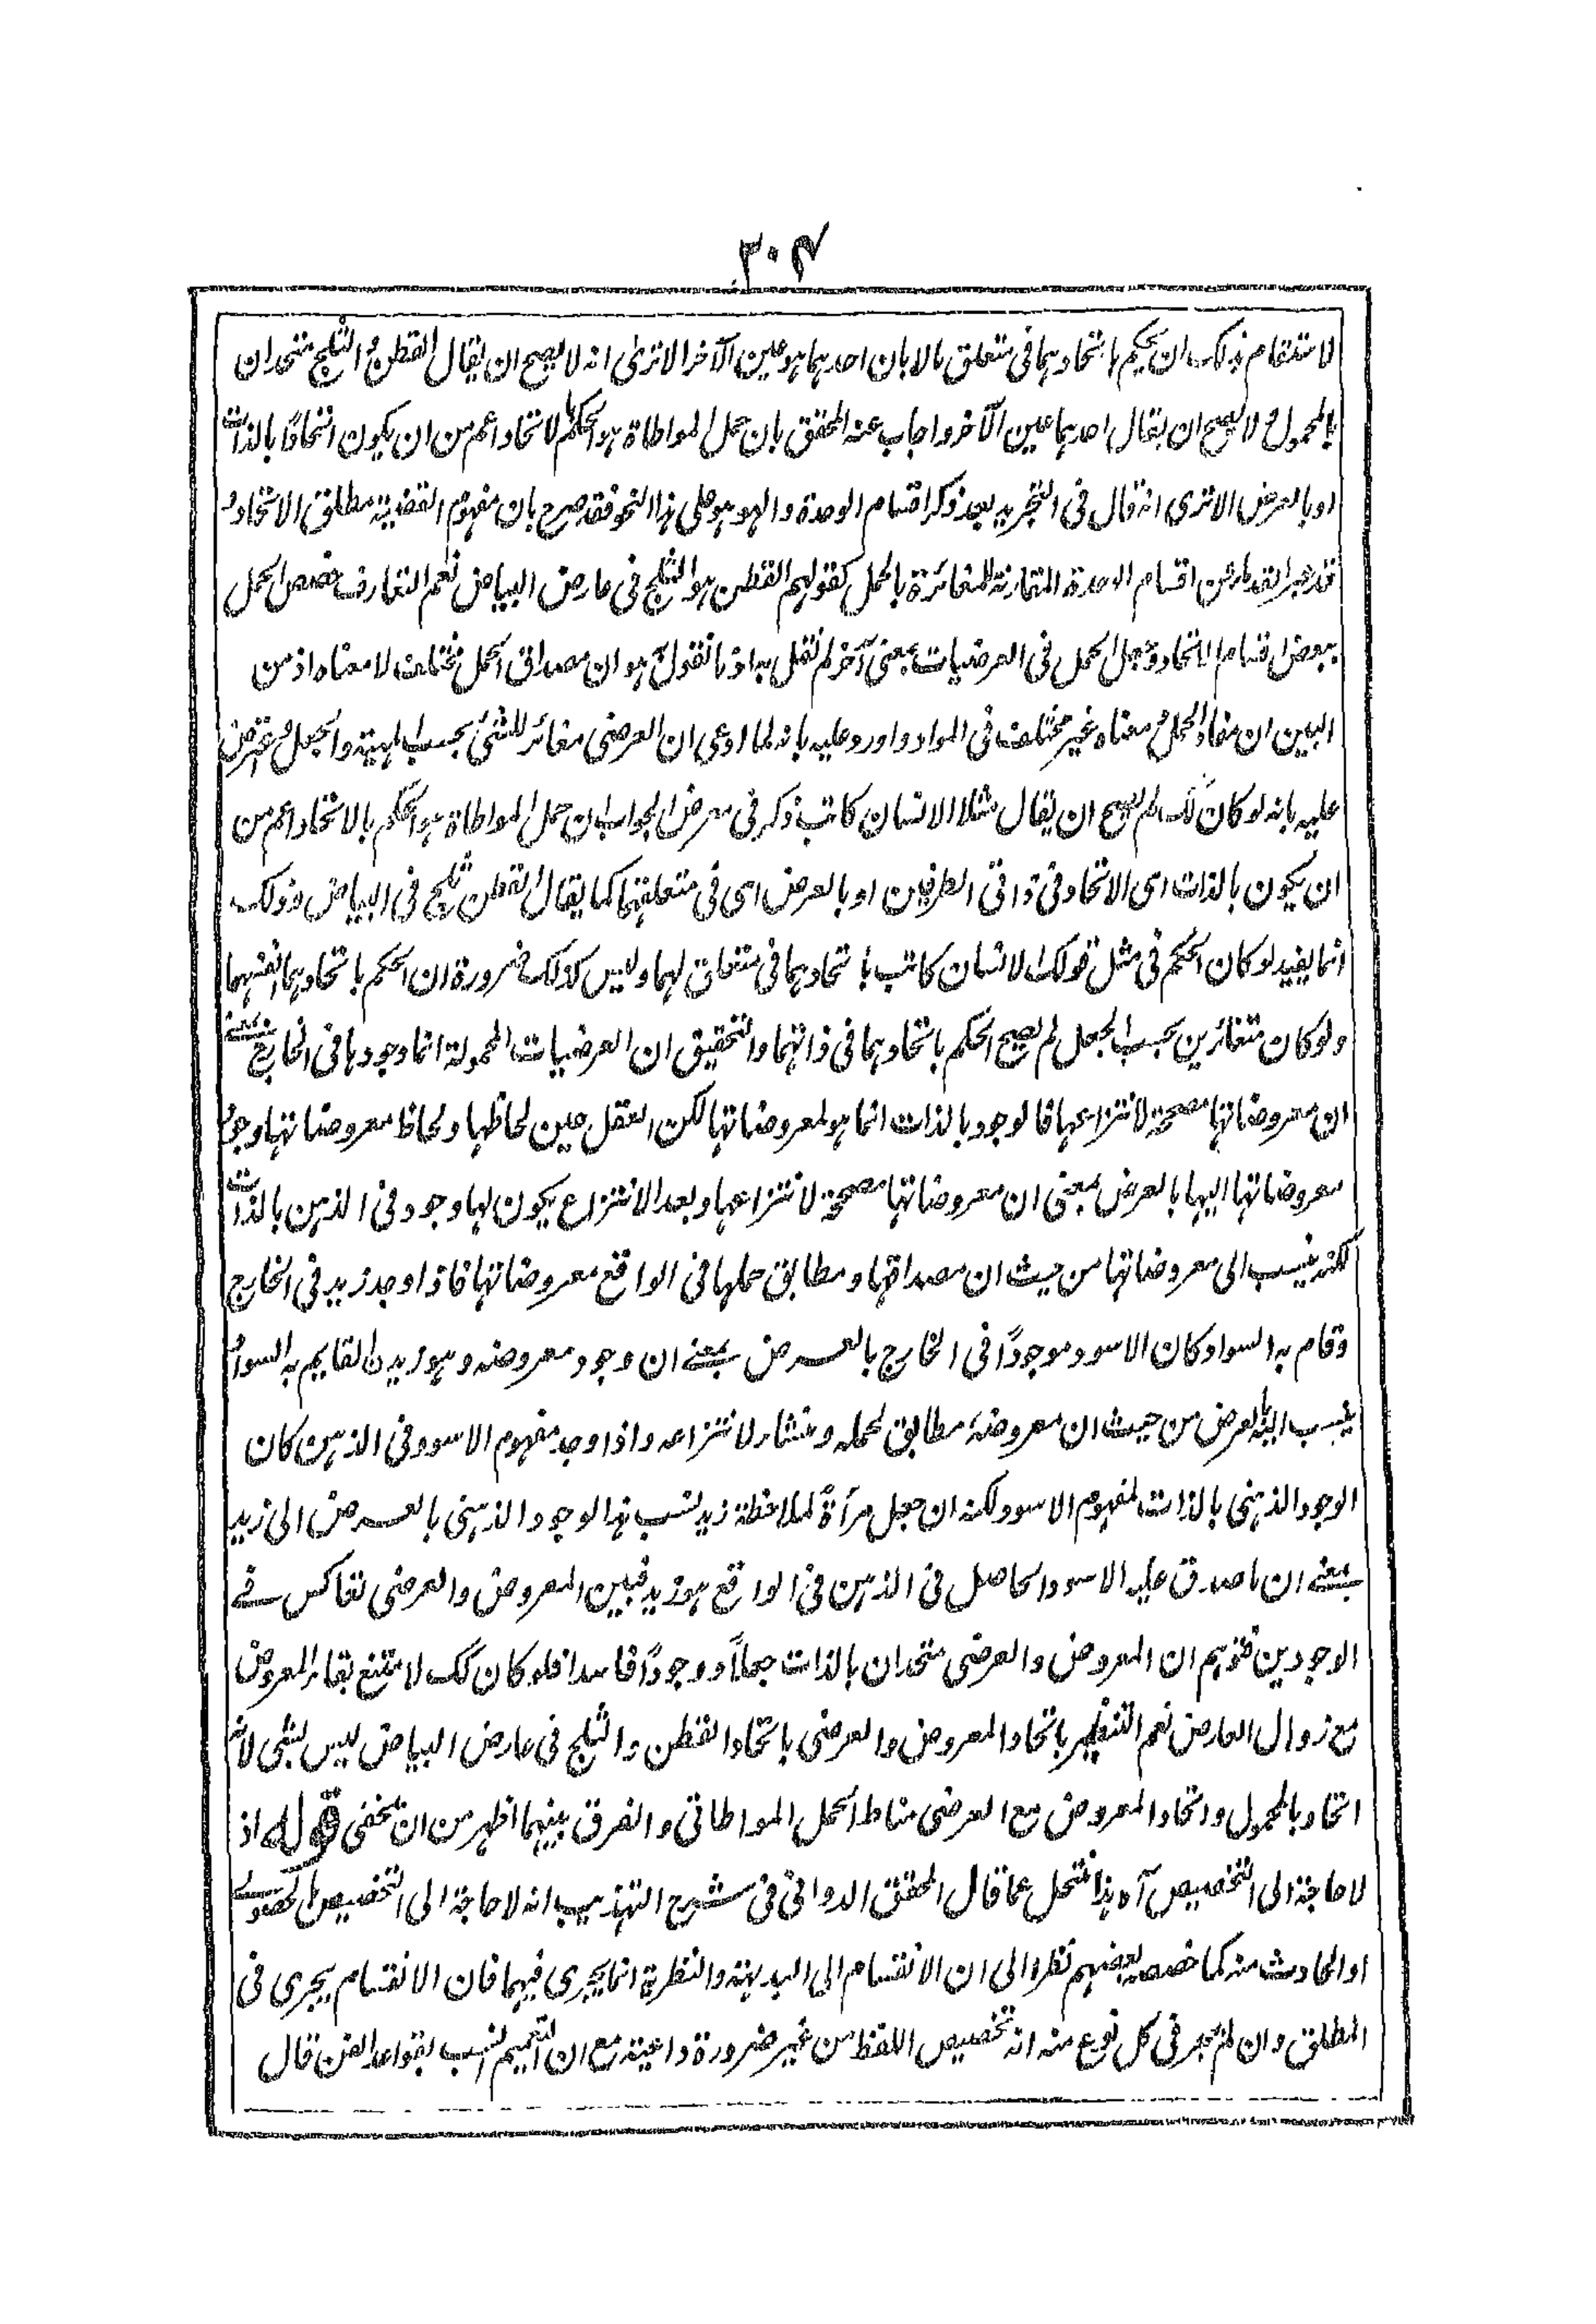 ٣٠٤
لاستقام بذلك ان يحكم باتحادهما فى متعلق ما لا بان احدهما هو عين الآخر الا ترى انه لا يصح ان يقال القطن و الثلج متحدان
بالمحمول و لا يصح ان يقال احدهما عين الآخر و اجاب عنه المحقق بان حمل المواطاة هو الحكم بالاتحاد اعم من ان يكون اتحادًا بالذات
او بالعرض الا ترى انه قال فى التجريد بعد ذكر اقسام الوحدة و الهو هو على هذا النحو فقد صرح بان مفهوم القضية مطلق الاتحاد و
قد عبر القدماء عن اقسام الوحدة المقارنة للمغائرة بالحمل كقولهم القطن هو الثلج فى عارض البياض نعم التعارف خصص الحمل
ببعض اقسام الاتحاد و جعل الحمل فى العرضيات بمعنى آخر لم نقل به اذ ما نقول به هو ان مصداق الحمل مختلف لا معناه اذ من
البين ان مفاد الحمل و معناه غير مختلف فى المواد و اورد عليه بانه لما ادعى ان العرضى مغائر للشئ بحسب المهية و الجعل و اعترض
عليه بانه لو كان كذلك لم يصح ان يقال مثلا الانسان كاتب ذكر فى معرض الجواب ان حمل المواطاة هو الحكم بالاتحاد اعم من
ان يكون بالذات اى الاتحاد فى ذاتى الطرفين او بالعرض اى فى متعلقهما كما يقال القطن ثلج فى البياض و ذلك
انما يفيد لو كان الحكم فى مثل قولك الانسان كاتب باتحادهما فى متعلق لهما و ليس كذلك ضرورة ان الحكم باتحادهما انفسهما
و لو كان متغائرين بحسب الجعل لم يصح الحكم باتحادهما فى ذاتهما و التحقيق ان العرضيات المحمولة انما وجودها فى الخارج بمعنى
ان معروضاتها مصححة لانتزاعها فالوجود بالذات انما هو لمعروضاتها لكن العقل حين لحاظها و لحاظ معروضاتها وجود
معروضاتها اليها بالعرض بمعنى ان معروضاتها مصححة لانتزاعها و بعد الانتزاع يكون لها وجود فى الذهن بالذات
لكنه ينسب الى معروضاتها من حيث ان مصداقها و مطابق حملها فى الواقع معروضاتها فاذا وجد زيد فى الخارج
و قام به السواد كان الاسود موجودًا فى الخارج بالعرض بمعنى ان وجود معروضه و هو زيد القايم به السواد
ينسب اليه بالعرض من حيث ان معروضه مطابق لحمله و منشاء لانتزاعه و اذا وجد مفهوم الاسود فى الذهن كان
الوجود الذهنى بالذات لمفهوم الاسود و لكنه ان جعل مرآةً لملاحظة زيد نسب هذا الوجود الذهنى بالعرض الى زيد
بمعنى ان ما صدق عليه الاسود الحاصل فى الذهن فى الواقع هو زيد فبين المعروض و العرضى تعاكس فى
الوجودين فتوهم ان المعروض و العرضى متحدان بالذات جعلاً و وجودًا فاسد اذ لو كان كك لامتنع بقاء المعروض
مع زوال العارض نعم التنظير باتحاد المعروض و العرضى باتحاد القطن و الثلج فى عارض البياض ليس بشئ لانه
اتحاد بالمحمول و اتحاد المعروض مع العرضى مناط الحمل المواطاتى و الفرق بينهما اظهر من ان يخفى قوله اذ
لا حاجة الى التخصيص آه هذا منتحل عما قال المحقق الدوانى فى شرح التهذيب انه لا حاجة الى التخصيص بالحصولى
او الحادث منه كما خصصه بعضهم نظرا الى ان الانقسام الى البديهة و النظرية انما يجرى فيهما فان الانقسام يجرى فى
المطلق و ان لم يجر فى كل نوع منه انه تخصيص اللفظ من غير ضرورة داعية مع ان التعميم انسب بقواعد الفن قال